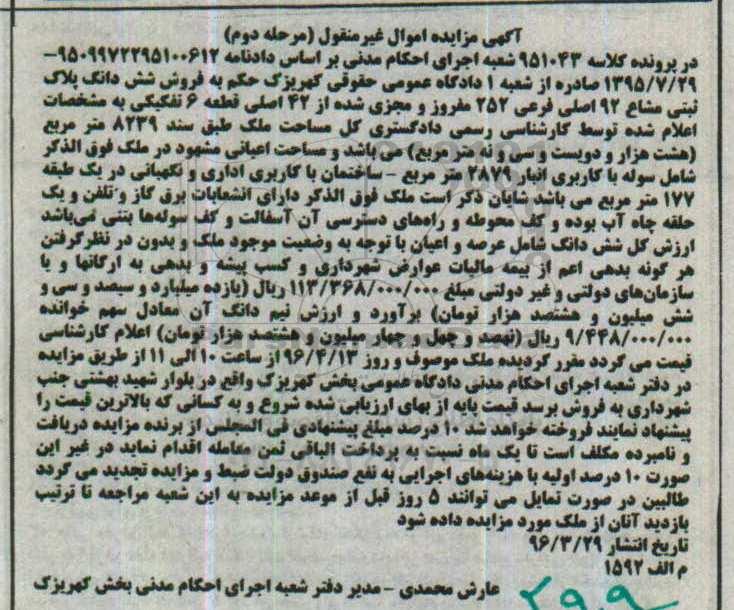 آگهی مزایده اموال غیرمنقول (مرحله دوم)
در پرونده کلاسه ۹۵۱۰۴۳ شعبه اجرای احکام مدنی بر اساس دادنامه ۹۵۰۹۹۷۲۲۹۵۱۰۰۶۱۲–
۱۳۹۵/۷/۲۹ صادره از شعبه ۱ دادگاه عمومی حقوقی کهریزک حکم به فروش شش دانگ پلاک
ثبتی مشاع ۹۲ اصلی فرعی ۲۵۲ مفروز و مجزی شده از ۴۲ اصلی قطعه ۶ تفکیکی به مشخصات
اعلام شده توسط کارشناسی رسمی دادگستری کل مساحت ملک طبق سند ۸۲۳۹ متر مربع
(هشت هزار و دویست و سی و نه متر مربع) می باشد و مساحت اعیانی مشهود در ملک فوق الذکر
شامل سوله با کاربری انبار ۲۸۷۹ متر مربع – ساختمان با کاربری اداری و نگهبانی در یک طبقه
۱۷۷ متر مربع می باشد شایان ذکر است ملک فوق الذکر دارای انشعابات برق گاز و تلفن و یک
حلقه چاه آب بوده و کف محوطه و راه‌های دسترسی آن آسفالت و کف سوله‌ها بتنی می‌باشد
ارزش کل شش دانگ شامل عرصه و اعیان با توجه به وضعیت موجود ملک و بدون در نظرگرفتن
هر گونه بدهی اعم از بیمه مالیات عوارض شهرداری و کسب پیشه و بدهی به ارگانها و یا
سازمان‌های دولتی و غیر دولتی مبلغ ۱۱۳/۳۶۸/۰۰۰/۰۰۰ ریال (یازده میلیارد و سیصد و سی و
شش میلیون و هشتصد هزار تومان) برآورد و ارزش نیم دانگ آن معادل سهم خوانده
۹/۴۴۸/۰۰۰/۰۰۰ ریال (نهصد و چهل و چهار میلیون و هشتصد هزار تومان) اعلام کارشناسی
قیمت می گردد مقرر گردیده ملک موصوف و روز ۹۶/۴/۱۳ از ساعت ۱۰ الی ۱۱ از طریق مزایده
در دفتر شعبه اجرای احکام مدنی دادگاه عمومی بخش کهریزک واقع در بلوار شهید بهشتی جنب
شهرداری به فروش برسد قیمت پایه از بهای ارزیابی شده شروع و به کسانی که بالاترین قیمت را
پیشنهاد نمایند فروخته خواهد شد ۱۰ درصد مبلغ پیشنهادی فی المجلس از برنده مزایده دریافت
و نامبرده مکلف است تا یک ماه نسبت به پرداخت الباقی ثمن معامله اقدام نماید در غیر این
صورت ۱۰ درصد اولیه با هزینه‌های اجرایی به نفع صندوق دولت ضبط و مزایده تجدید می گردد
طالبین در صورت تمایل می توانند ۵ روز قبل از موعد مزایده به این شعبه مراجعه تا ترتیب
بازدید آنان از ملک مورد مزایده داده شود
تاریخ انتشار ۹۶/۳/۲۹
م الف ۱۵۹۲
عارش محمدی – مدیر دفتر شعبه اجرای احکام مدنی بخش کهریزک
۲۹۹